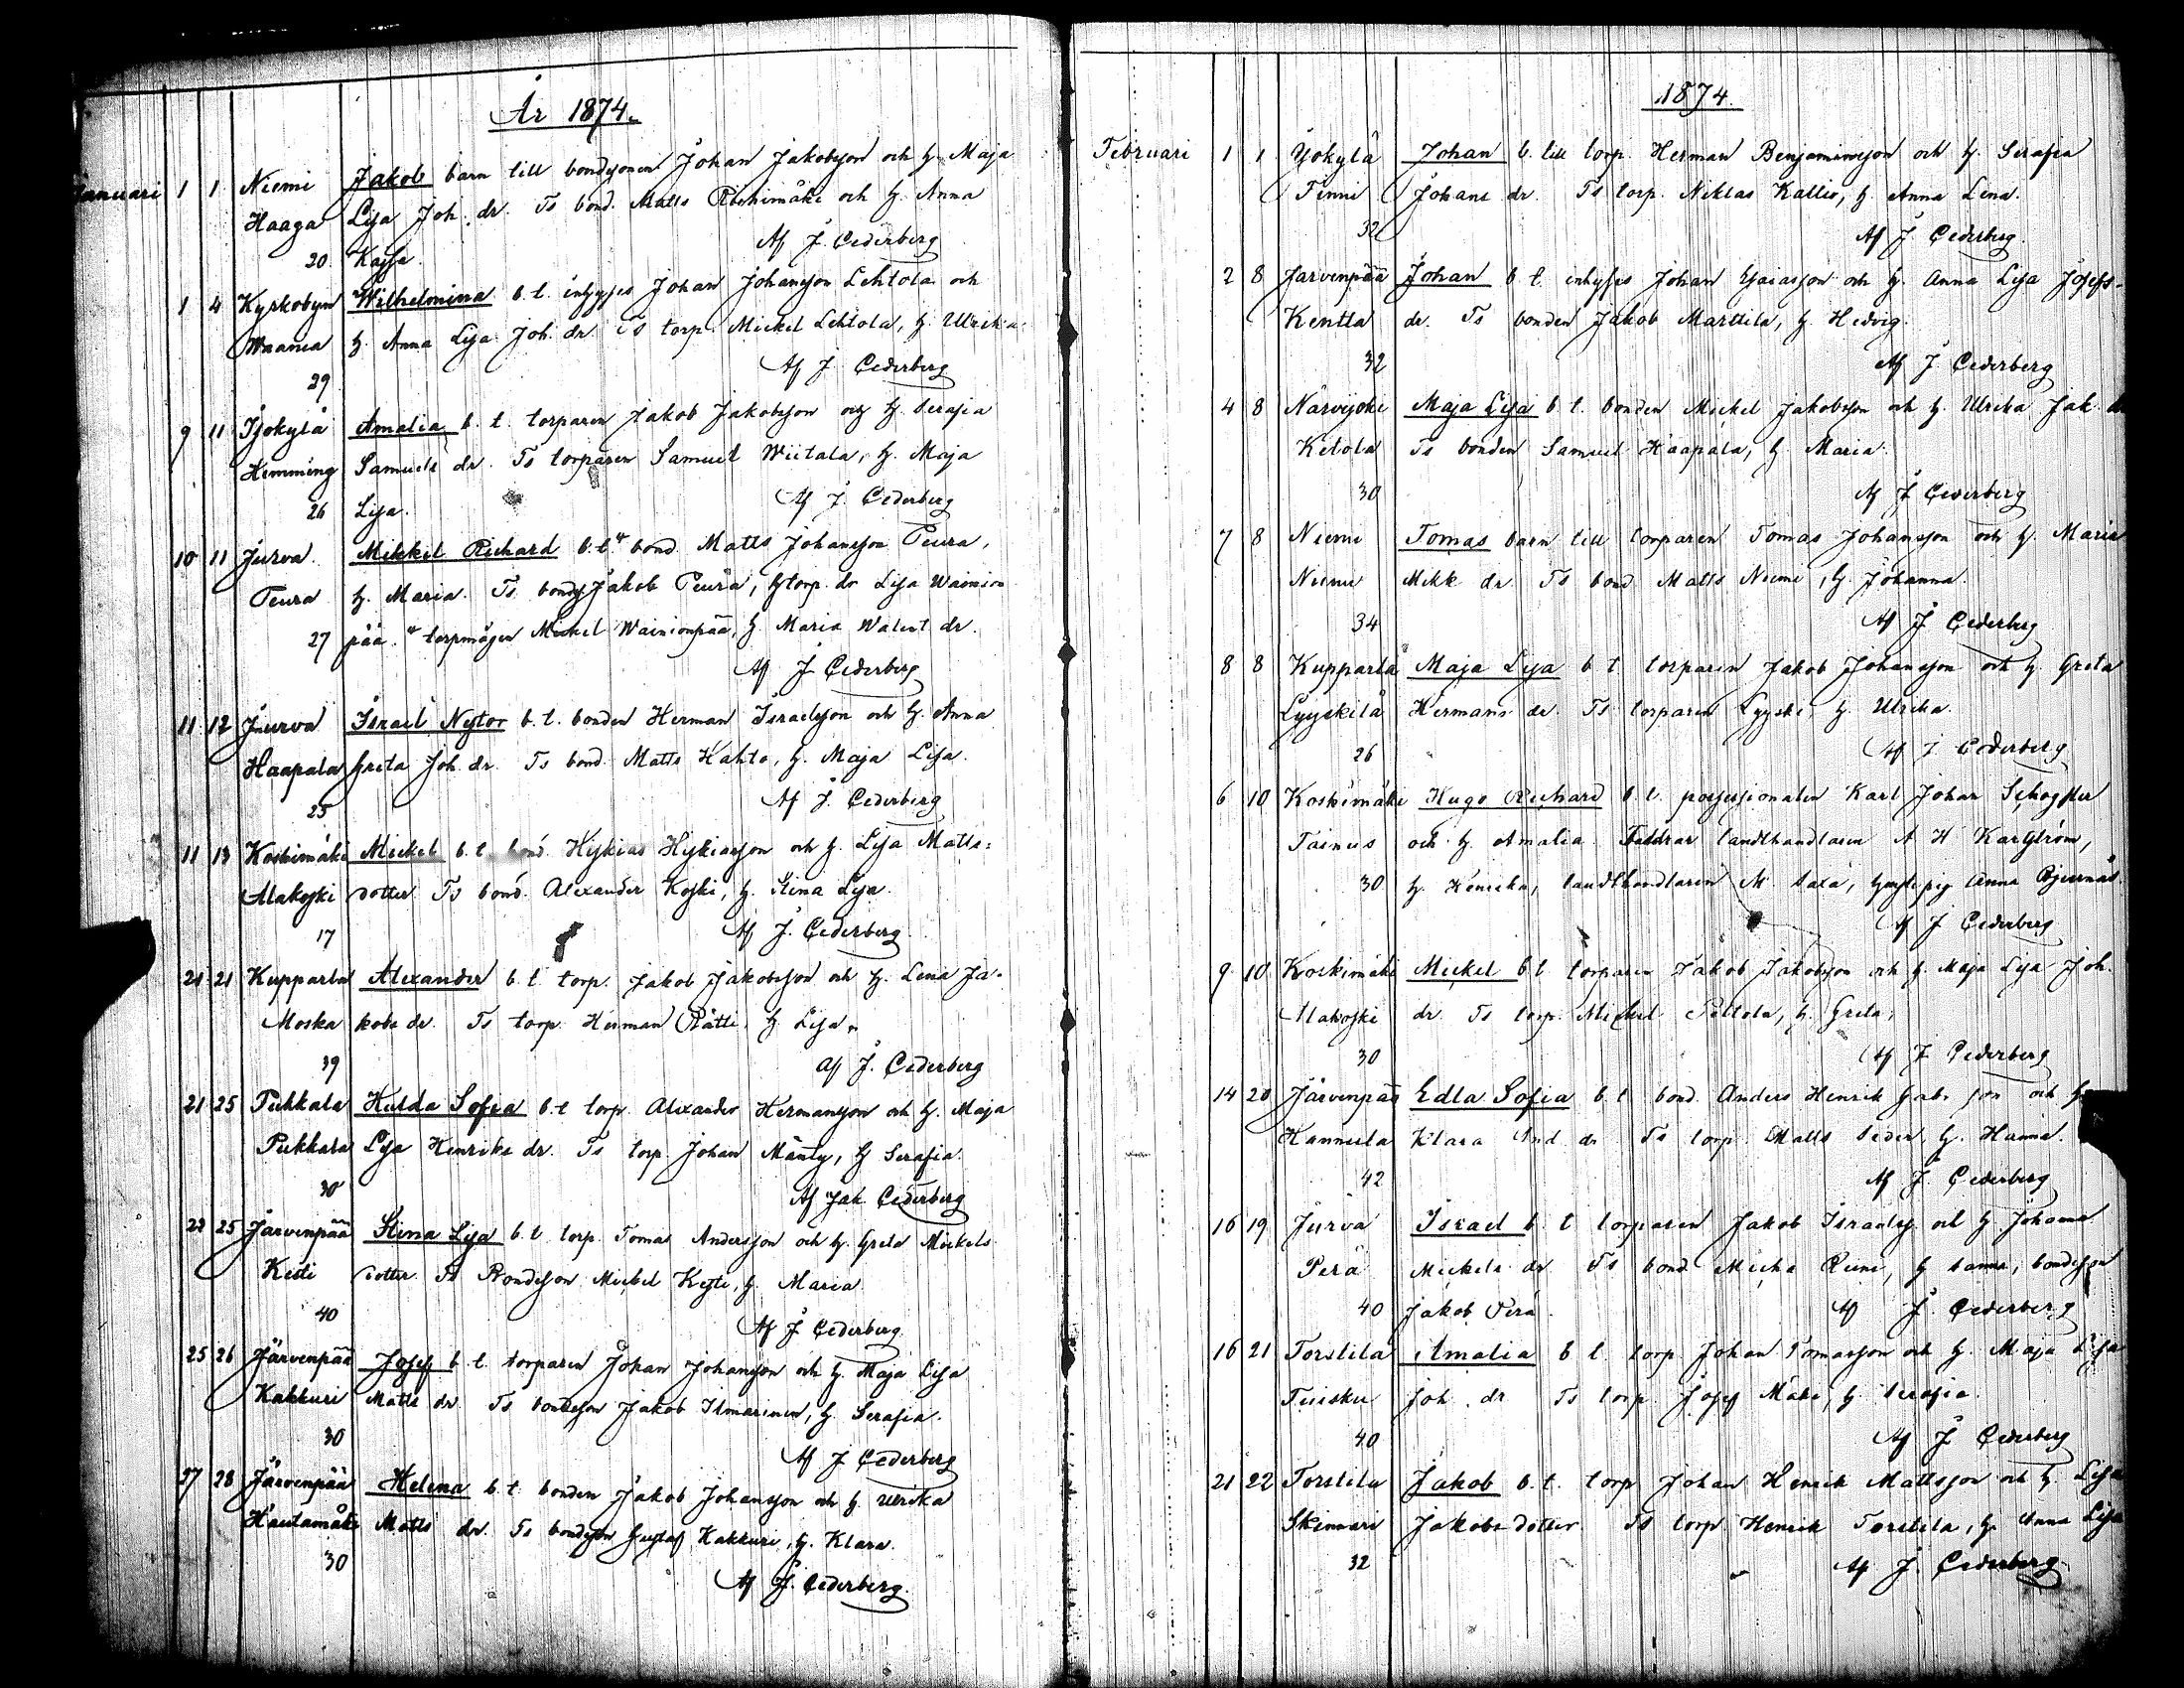 År 1874.
Januari 1 1 Niemi Jakob barn till bondsonen Johan Jakobsson och h. Maja
Haaga Lisa Joh. dr. Ts bond. Matts och h. Anna
20 Kajsa. Af J. Cederberg
1 4 Kyrkobyn Wilhelmina b. t. inhyses Johan Johansson Lehtola och
Waania h. Anna Lisa Joh. dr. Ts torp. Mickel Lehtola, h. Ulrika.
29 Af J. Cederberg
9 11 Amalia b. t. torparen Jakob Jakobsson och h. Serafia
Hemming Samuels dr. Ts torparen Samuel Wiitala, h. Maja
26 Lisa. Af J. Cederberg
10 11 Jurva. Mikkel Richard b. t. bond. Matts Johansson Peura,
Peura h. Maria. Ts bonds Jakob Peura, torp. dr Lisa Wainion
27 pää. Mickel Wainionpää, h. Maria Walent dr.
Af J. Cederberg
11 12 Jurva Israel Nestor b. t. bonden Herman Israelsson och h. Anna
Haapala Greta Joh. dr. Ts bond. Matts Kahto, h. Maja Lisa.
25 Af J. Cederberg
11 13 Koskimäki Mickel b. t. bond. Hiskias Hiskiasson och h. Lisa Matts-
Alakoski dotter Ts bond. Alexander Koski, h. Stina Lisa.
17 Af J. Cederberg
21 21 Kupparla Alexander b. t. torp. Jakob Jakobsson och h. Lena Ja-
Moska kobs dr. Ts torp. Herman Rätti, h. Lisa.
39 Af J. Cederberg
21 25 Pukkala Hulda Sofia b. t torp. Alexander Hermansson och h. Maja
Pukkala Lisa Henriks dr. Ts torp. Johan Mänty, h Serafia.
30 Af Jak. Cederberg
22 25 Järvenpää Stina Lisa b. t torp. Tomas Andersson och h. Greta Mickels
Kesti dotter. Ts Bondeson Mickel Kesti, h. Maria.
40 Af J. Cederberg
25 26 Järvenpää Josef b. t. torparen Johan Johansson och h. Maja Lisa
Kakkuri Matts dr. Ts bondeson Jakob Ilmarinen, h. Serafia.
30 Af J. Cederberg
27 28 Järvenpää Helena b. t. bonden Jakob Johansson och h. Ulrika
Hautamäki Matts dr. Ts bondeson Gustaf Kakkuri, h. Klara.
30 Af J. Cederberg.
1874.
Februari 1 1 Johan b. till torp. Herman Benjaminsson och h. Serafia
Finni Johans dr. Ts torp. Niklas Kallio, h. Anna Lena.
32 Af J Cederberg.
2 8 Jarvenpää Johan b t. inhyses Johan Esaiasson och h. Anna Lisa Josefs-
Kentta dr. Ts bonden Jakob Marttila, h. Hedvig.
32 Af J Cederberg
4 8 Närvijoki Maja Lisa b t. bonden Mickel Jakobsson och h. Ulrika Jak. dr
Ketola Ts bonden Samuel Haapala, h. Maria
30 Af J Cederberg
7 8 Niemi Tomas barn till torparen Tomas Johansson och h. Maria
Niemi Mikk dr. Ts bond Matts Niemi, h. Johanna.
34 Af J Cederberg
8 8 Kupparla Maja Lisa b t torparen Jakob Johansson och h Greta
Lyyskilä Hermans dr. Ts torparen Lyyski, h. Ulrika.
26 Af J Cederberg
6 10 Koskimäki Hugo Richard b t. possessionaten Karl Johan
Tainus och h. Amalia. Faddrar landthandlaren A H Kargström,
30 h. Henrika, landthandlaren M. Saxa, pig Anna Björnäs.
Af J Cederberg
9 10 Koskimäki Mickel b t torparen Jakob Jakobsson och h. Maja Lisa Joh.
Alakoski dr. Ts torp. Mickel Peltola, h. Greta.
30 Af J Cederberg
14 20 Järvenpää Edla Sofia b t bond. Anders Henrik Gabr. son och h
Hannula Klara And. dr Ts torp. Matts Seder, h. Hanna.
42 Af J Cederberg
16 19 Jurva Israel b. t torparen Jakob Israels. och h. Johanna
Perä Mickels dr. Ts bond Micka Rini, h Sanna, bondeson
40 Jakob Perä. Af J. Cederberg
16 21 Torstila Amalia b t. torp Johan Tomasson och h. Maja Lisa
Tuisku Joh. dr Ts torp. Josef Mäki, h. Serafia.
40 Af J Cederberg
21 22 Torstila Jakob b. t. torp Johan Henrik Mattsson och h. Lisa
Skinnari Jakobs dotter. Ts torp. Henrik Torstila, h. Anna Lisa
32 Af J. Cederberg